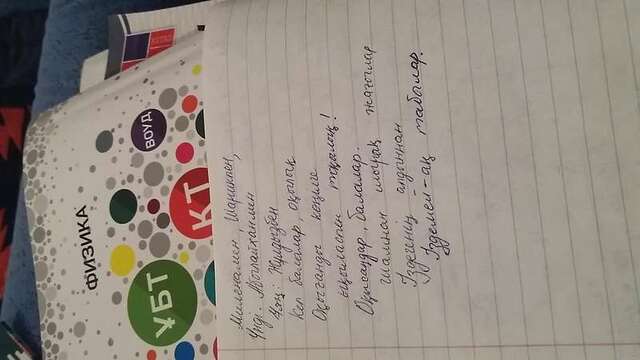 ФИЗИКА
ҰБТ
ВОУД
КТ
Миленамен, Шарикпен,
Үнді. Абылайханмен
Жұлдызбен
Кел балалар, оқылық
Оқығанды көңілге
ықыласпен тоқылық!
Оқысаңдар, балалар.
Шамнан шырақ жағылар
Іздегенің алдыңнан
Іздемей-ақ табылар.